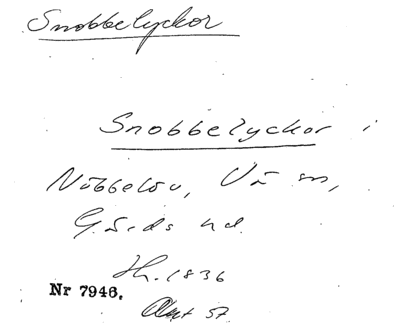 Snobbelyckor
Snobbelyckor i
Nöbbelöv, Vä sn,
Gärds hd.
Hr. 1836
Nr 7946.
57